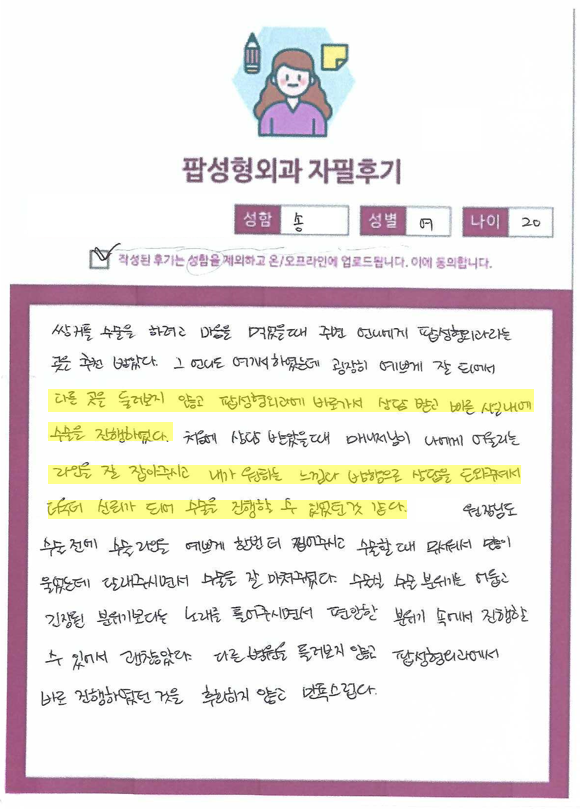 팝성형외과 자필후기
성함 송 성별 여 나이 20
작성된 후기는 성함을 제외하고 온/오프라인에 업로드됩니다. 이에 동의합니다.
쌍커풀 수술을 하려고 마음을 먹었을때 주변 언니에게 팝성형외과라는
곳을 추천 받았다. 그 언니도 여기서 하였는데 굉장히 예쁘게 잘 되어서
다른 곳을 둘러보지 않고 팝성형외과에 바로가서 상담 받고 빠른 시일내에
수술을 진행하였다. 처음에 상담 받았을때 매니저님이 나에게 어울리는
라인을 잘 잡아주시고 내가 원하는 느낌과 방향으로 상담을 도와주셔서
더욱더 신뢰가 되어 수술을 진행할 수 있었던것 같다. 원장님도
수술 전에 수술 라인을 예쁘게 한번 더 잡아주시고 수술할 때 무서워서 많이
울었는데 달래주시면서 수술을 잘 마쳐주셨다. 수술실 수술 분위기는 어둡고
긴장된 분위기보다는 노래를 틀어주시면서 편안한 분위기 속에서 진행할
수 있어서 괜찮았다. 다른 병원을 둘러보지 않고 팝성형외과에서
바로 진행하였던 것을 후회하지 않고 만족스럽다.